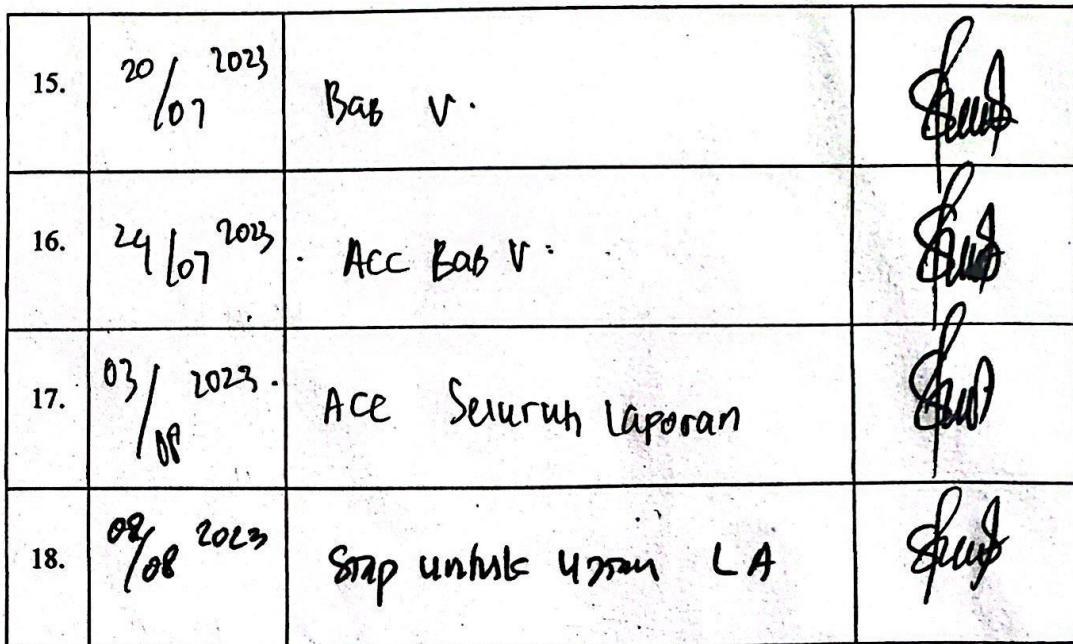 15. 20/07 2023 Bab V.
16. 24/07 2023. Acc Bab V.
17. 03/08 2023. Acc Seluruh Laporan
18. 08/08 2023 Siap untuk Ujian LA